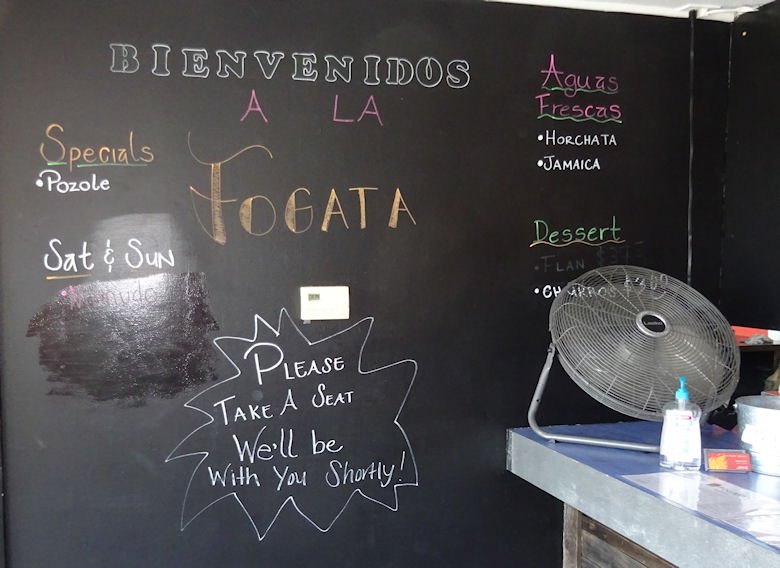 BIENVENIDOS
A LA
FOGATA
Specials
•Pozole
Sat & Sun
•Menudo
Please
Take A Seat
We'll be
With You Shortly!
Aguas
Frescas
•Horchata
•Jamaica
Dessert
•Flan
•Churros
Lasko